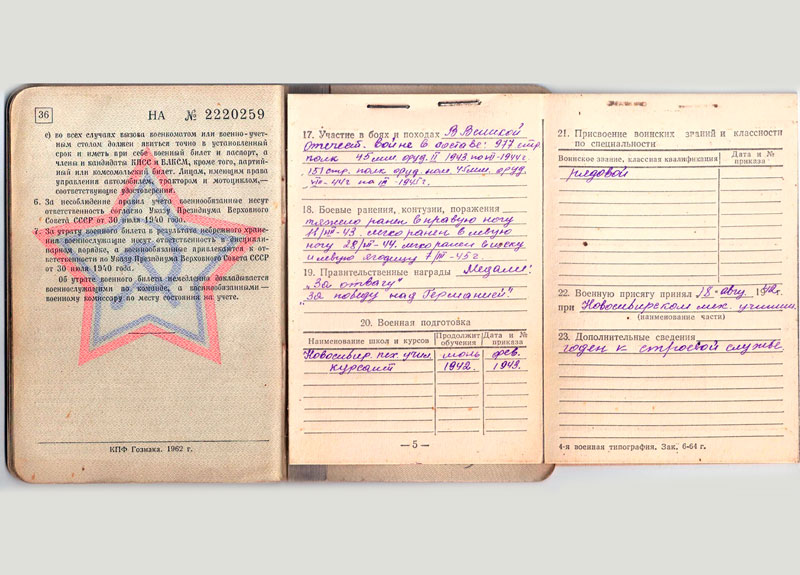 36
НА № 2220259
е) во всех случаях вызова военкоматом или военно-учет-
ным столом должен явиться точно в установленный
срок и иметь при себе военный билет и паспорт, а
члены и кандидаты КПСС и ВЛКСМ, кроме того, партий-
ный или комсомольский билет. Лицам, имеющим права
управления автомобилем, трактором и мотоциклом,—
соответствующие удостоверения.
6. За несоблюдение правил военнообязанные несут
ответственность согласно Указу Президиума Верховного
Совета СССР от 30 июля 1940 года.
7. За утрату военного билета в результате небрежного хране-
ния военнослужащие несут ответственность в дисципли-
нарном порядке, а военнообязанные привлекаются к от-
ветственности по Указу Президиума Верховного Совета СССР
от 30 июля 1940 года.
Об утрате военного билета немедленно докладывается
военнослужащими по команде, а военнообязанными—
военному комиссару по месту состояния на учете.
КПФ Гознака. 1962 г.
17. Участие в боях и походах В Великой
Отечест. войне в составе: 977 стр.
полк 45 мм оруд. 1943 по 1944г.
151 стр. полк 45мм. оруд.
44г по 1945г.
18. Боевые ранения, контузии, поражения
тяжело ранен в правую ногу
43. легко ранен в левую
ногу 28/ -44. легко ранен в
и левую ягодицу 7/III-45г.
19. Правительственные награды Медали:
„За отвагу"
„За победу над Германией".
20. Военная подготовка
Наименование школ и курсов Продолжит. обучения Дата и № приказа
Новосибир. пех. учил. июль фев.
курсант 1942. 1943.
— 5 —
21. Присвоение воинских званий и классности
по специальности
Воинское звание, классная квалификация Дата и № приказа
рядовой
22. Военную присягу принял 18 авгу 1942г.
при Новосибирском пех. училищ.
(наименование части)
23. Дополнительные сведения
годен к строевой службе.
4-я военная типография. Зак. 6-64 г.